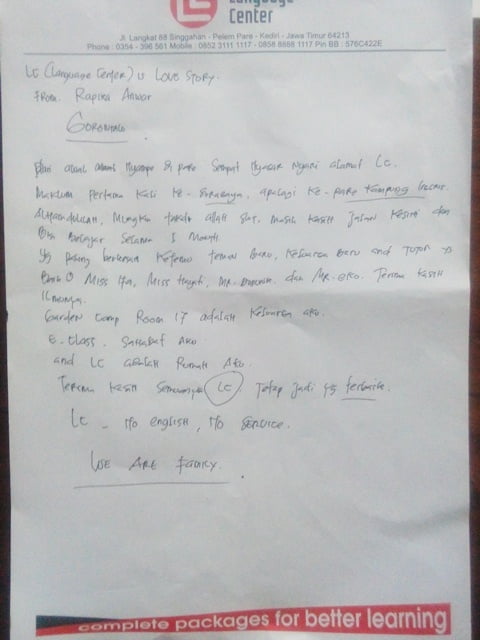 Language
Center
Jl. Langkat 88 Singgahan - Pelem Pare - Kediri - Jawa Timur 64213
Phone : 0354 - 396 561 Mobile : 0852 3111 1117 - 0858 8888 1117 Pin BB : 576C422E
LC (Language Center) is LOVE STORY.
From. Rapika Anwar
GORONTALO
awal nyampe di pare sempat nyasar nyari alamat LC.
Maklum pertama kali ke- Surabaya, apalagi ke- pare kampung Inggris.
Alhamdulillah, mungkin takdir allah swt. masih kasih jalan kesini dan
bisa belajar selama 1 month
yg paling berkesan ketemu teman baru, keluarga baru and TUTOR
Miss Ifa, Miss Hayati, MR. dan MR. eko. Terima kasih
ilmunya.
Garden Camp Room 17 adalah keluarga aku.
E. Class. Sahabat Aku
and LC adalah Rumah Aku.
Terima kasih semuanya LC tetap jadi yg terbaik.
LC - No english, No service.
WE ARE FAMILY.
complete packages for better learning